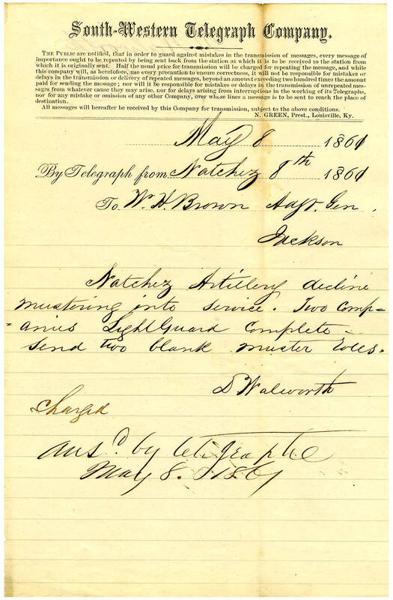 South-Western Telegraph Company.
THE PUBLIC are notified, that in order to guard against mistakes in the transmission of messages, every message of
importance ought to be repeated by being sent back from the station at which it is to be received to the station from
which it is originally sent. Half the usual price for transmission will be charged for repeating the message, and while
this company will, as heretofore, use every precaution to ensure correctness, it will not be responsible for mistakes or
delays in the transmission or delivery of repeated messages, beyond an amount exceeding two hundred times the amount
paid for sending the message; nor will it be responsible for mistakes or delays in the transmission of unrepeated messages
from whatever cause they may arise, nor for delays arising from interruptions in the working of its Telegraphs,
nor for any mistake or omission of any other Company, over whose lines a message is to be sent to reach the place of
destination.
All messages will hereafter be received by this Company for transmission, subject to the above conditions.
N. GREEN, Prest., Louisville, Ky.
May 8 1861
By Telegraph from Natchez 8th 1861
To W. H. Brown Adjt. Gen.
Jackson
Natchez Artillery decline
mustering into service. Two Comp-
anies Light Guard Complete -
send two blank muster Rolls.
D Walworth
Charged
ansd by telegraph
May 8. 1861